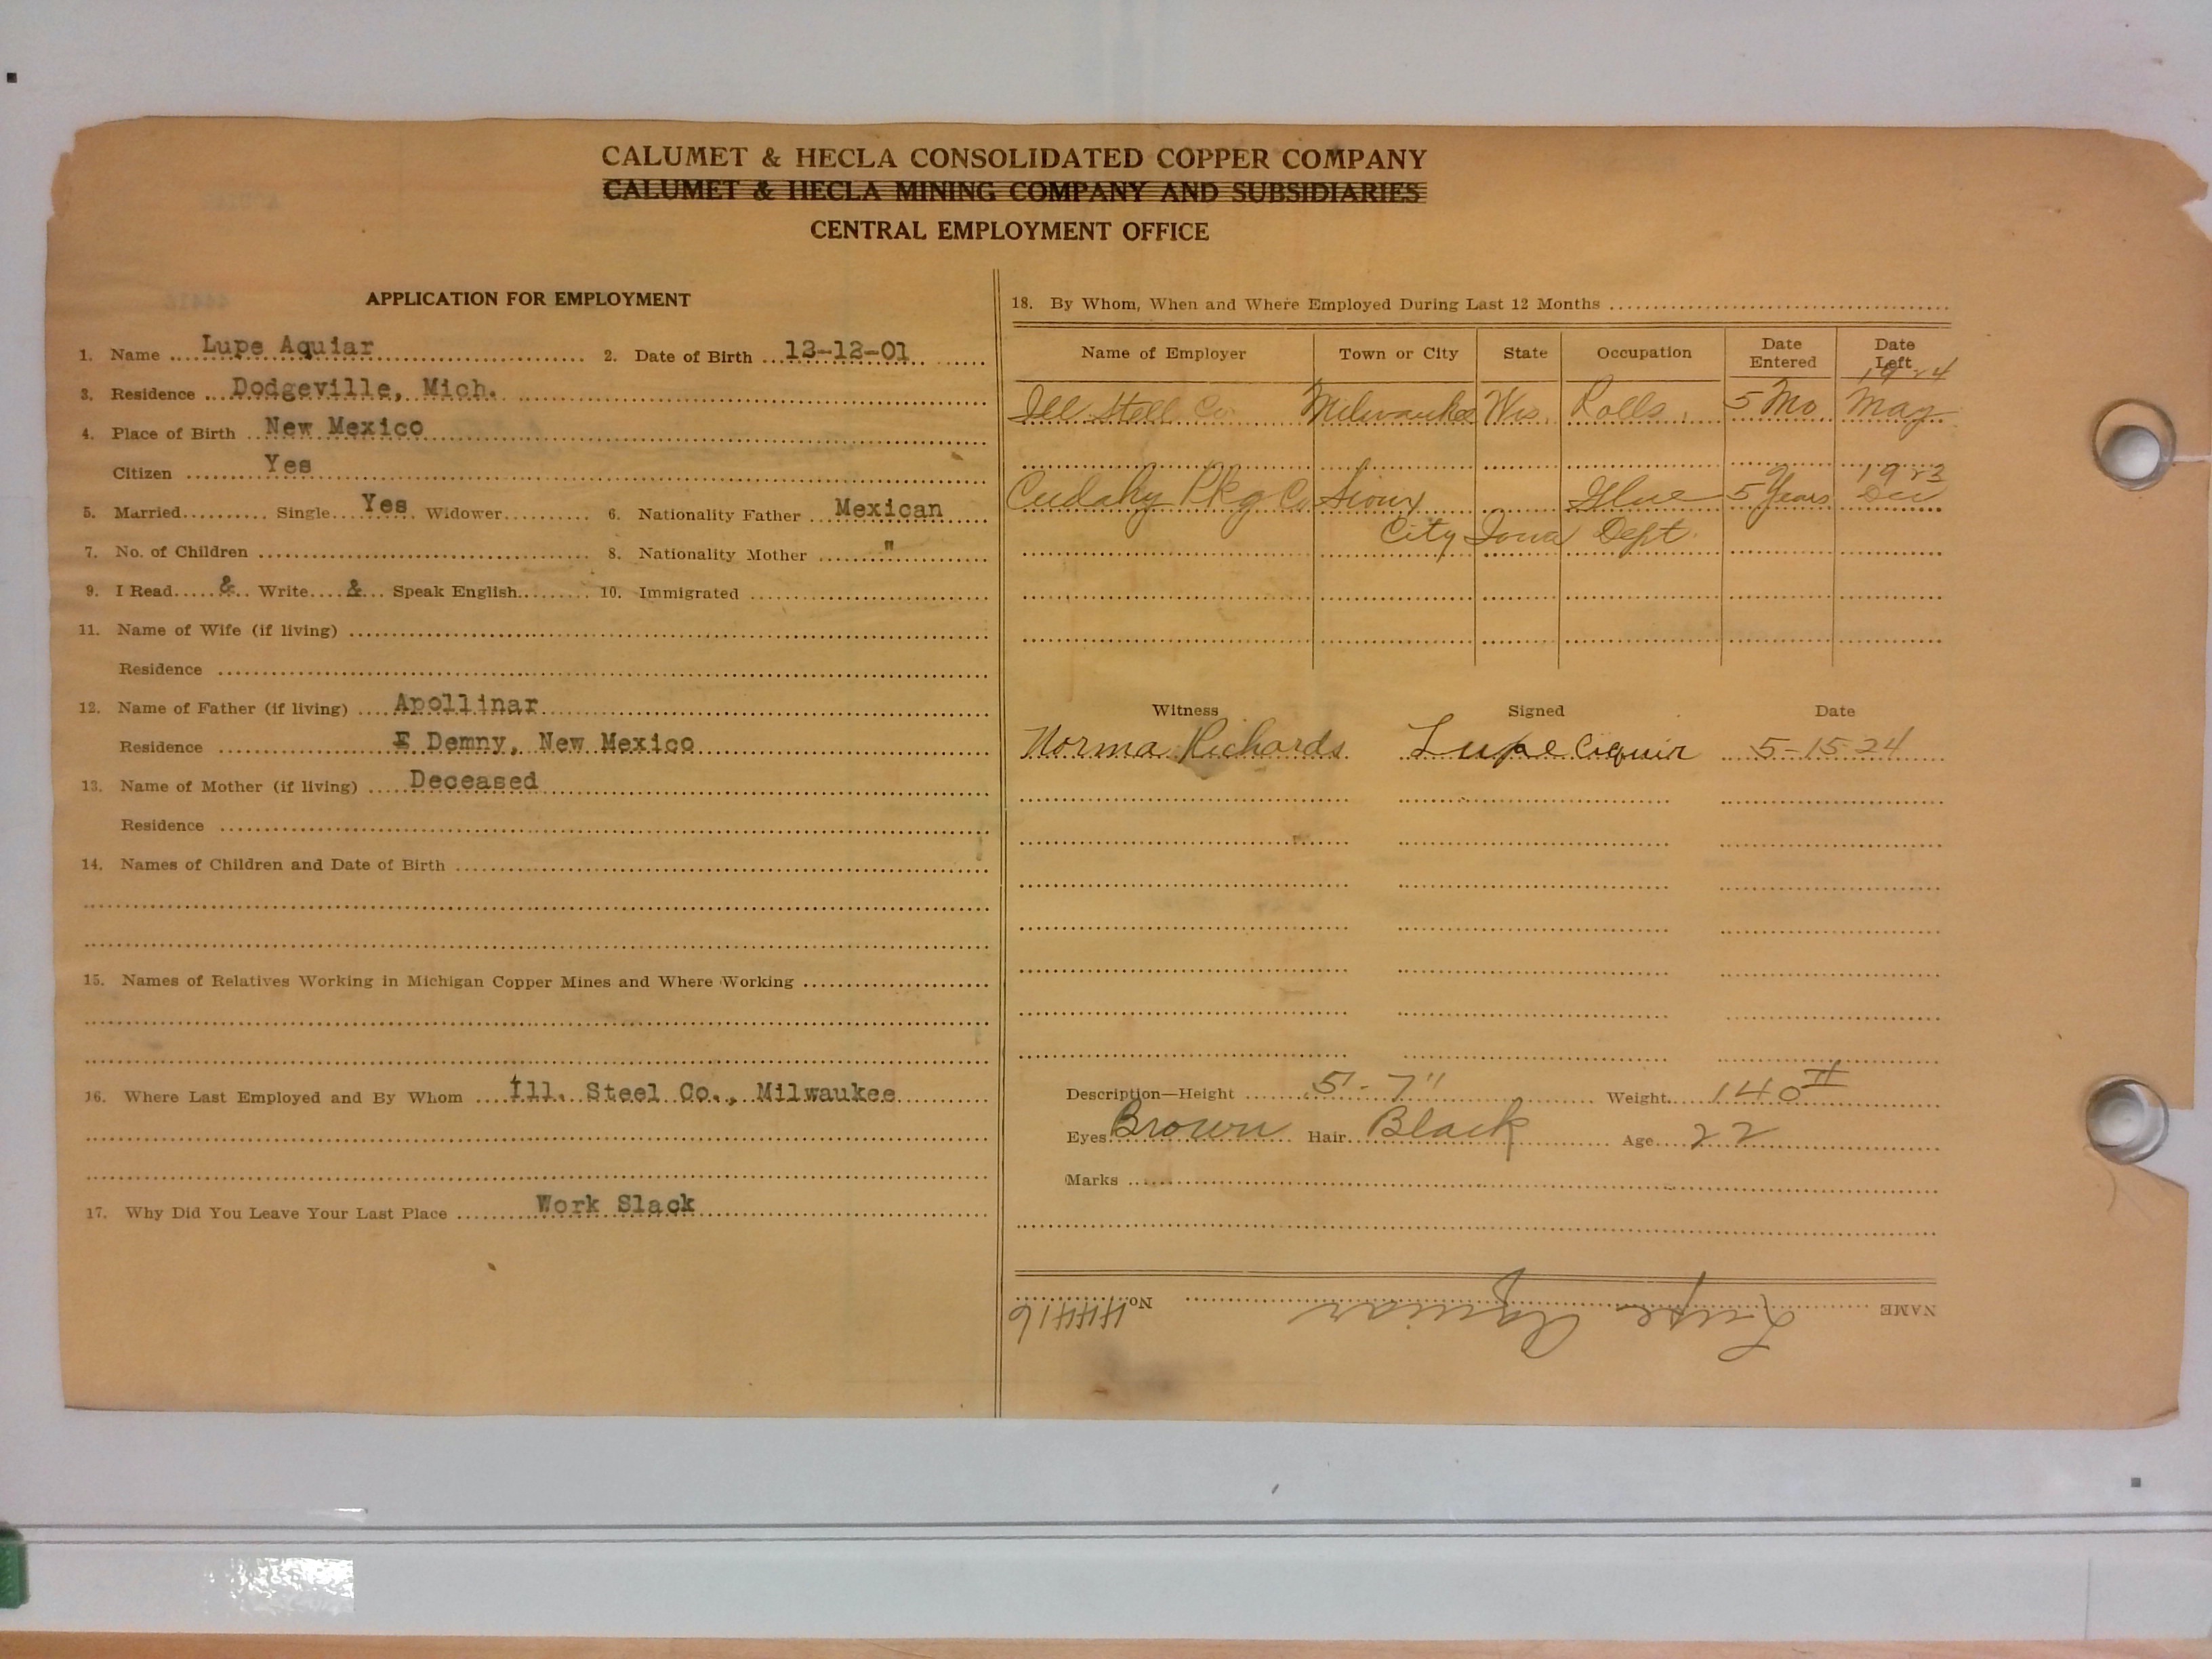 CALUMET & HECLA CONSOLIDATED COPPER COMPANY
CALUMET & HECLA MINING COMPANY AND SUBSIDIARIES
CENTRAL EMPLOYMENT OFFICE
APPLICATION FOR EMPLOYMENT
1. Name Lupe Aquiar 2. Date of Birth 12-12-01
3. Residence Dodgeville, Mich.
4. Place of Birth New Mexico
Citizen Yes
5. Married Single Yes Widower 6. Nationality Father Mexican
7. No. of Children 8. Nationality Mother "
9. I Read & Write & Speak English 10. Immigrated
11. Name of Wife (if living)
Residence
12. Name of Father (if living) Apollinar
Residence Demny, New Mexico
13. Name of Mother (if living) Deceased
Residence
14. Names of Children and Date of Birth
15. Names of Relatives Working in Michigan Copper Mines and Where Working
16. Where Last Employed and By Whom Ill. Steel Co., Milwaukee
17. Why Did You Leave Your Last Place Work Slack
18. By Whom, When and Where Employed During Last 12 Months
Name of Employer Town or City State Occupation Date Entered Date Left
1924
Ill Stell Co. Milwaukee Wis. Rolls. 5 Mo. May
1923
Cudahy Pkg Co Sioux Glue 5 Years Dec
City Iowa Dept.
Witness Signed Date
Norma Richards Lupe Aquir 5-15-24
Description—Height 5'-7" Weight 140 #
Eyes Brown Hair Black Age 22
Marks
NAME Lupe Aquiar No. 44416